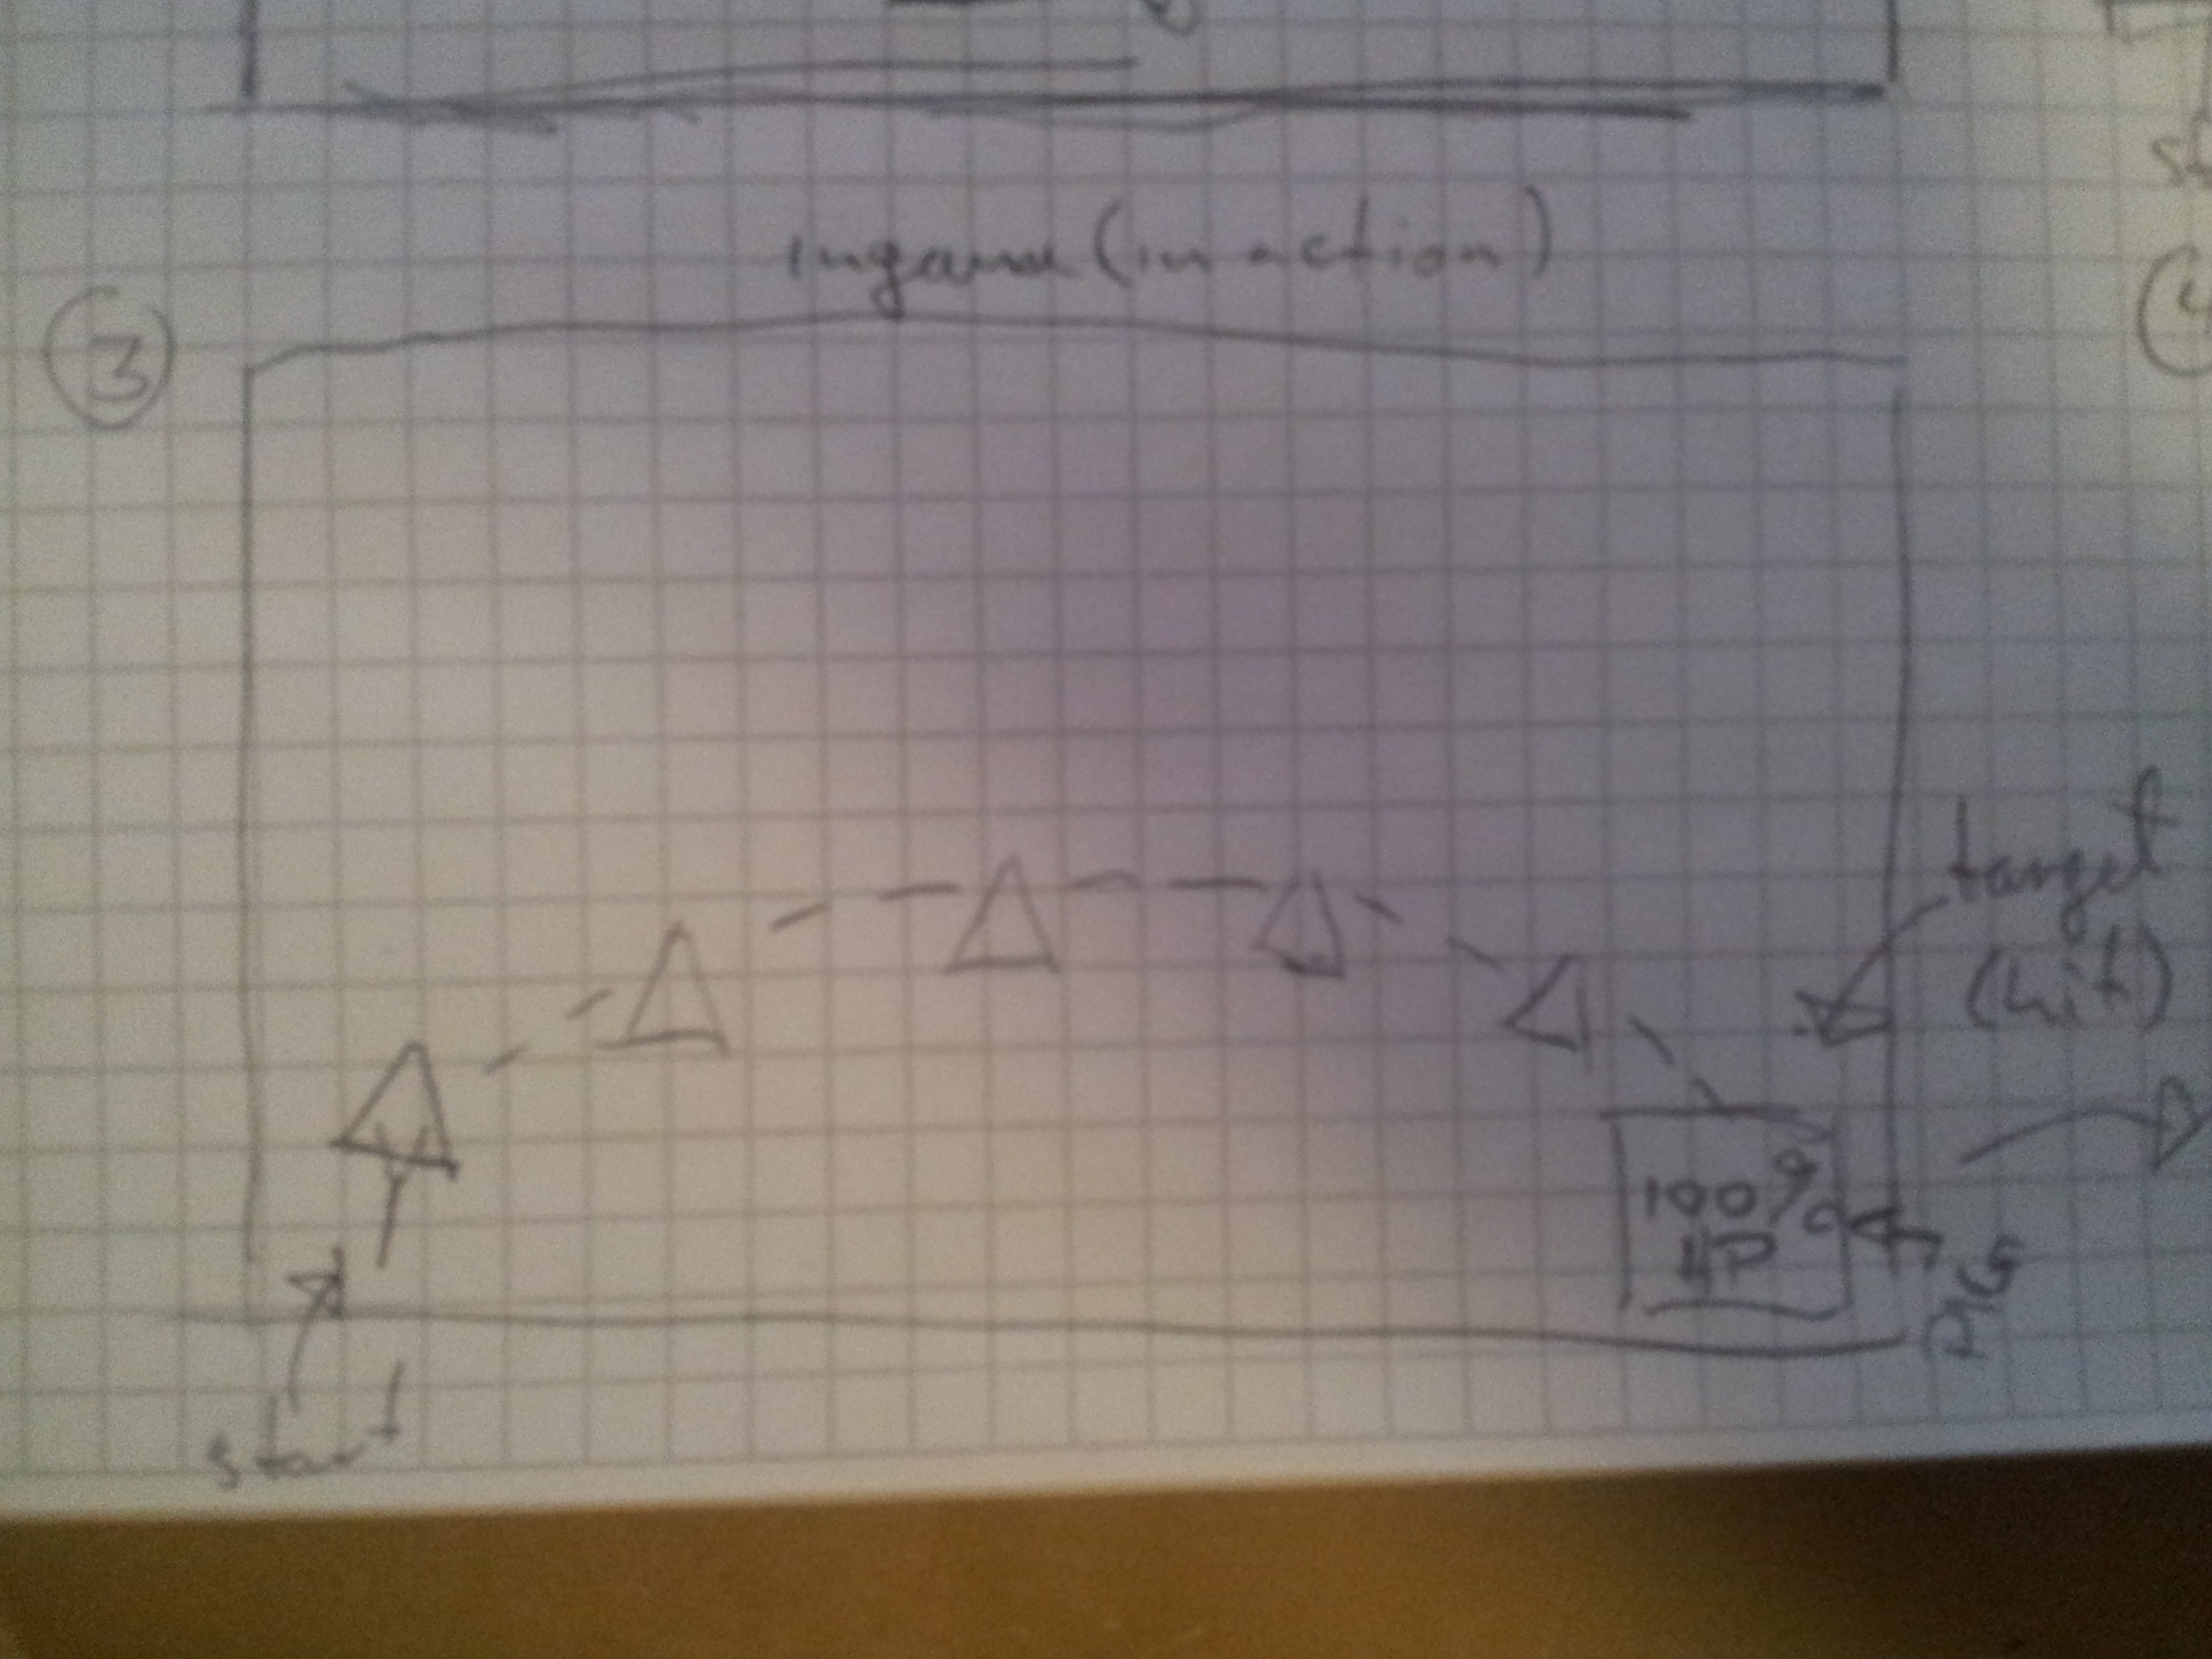 Ingame (in action)
3
target
(hit)
100%
HP
PIG
start